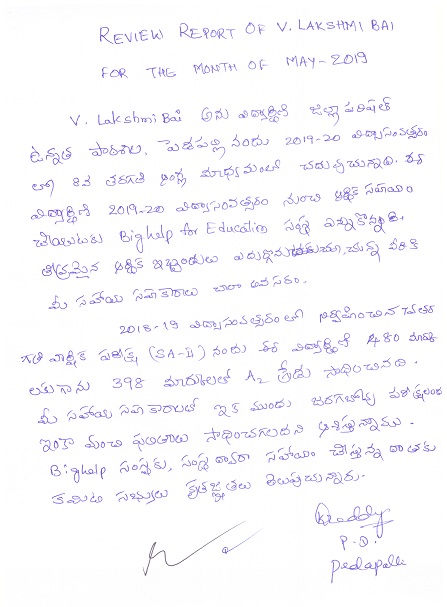 REVIEW REPORT OF V. LAKSHMI BAI
FOR THE MONTH OF MAY-2019
V. Lakshmi Bai అను విద్యార్థిని జిల్లా పరిషత్
ఉన్నత పాఠశాల, పెదపల్లి నందు 2019-20 విద్యాసంవత్సరం
లో 8వ తరగతి ఆంగ్ల మాధ్యమంలో చదువుచున్నది. ఈ
విద్యార్థిని 2019-20 విద్యాసంవత్సరం నుంచి ఆర్థిక సహాయం
చేయుటకు Bighelp for Education సంస్థ ఎన్నుకొన్నది.
తీవ్రమైన ఆర్థిక ఇబ్బందులు వీరికి
మీ సహాయ సహకారాలు చాలా అవసరం.
2018-19 విద్యాసంవత్సరంలో నిర్వహించిన
వార్షిక పరీక్ష (SA-II) నందు ఈ విద్యార్థిని 480 మార్కు
లకుగాను 398 మార్కులతో A2 గ్రేడు సాధించినది.
మీ సహాయ సహకారాలతో ఇక ముందు జరగబోవు పరీక్షలందు
ఇంకా మంచి ఫలితాలు సాధించగలదని ఆశిస్తున్నాము.
Bighelp సంస్థకు, సంస్థ ద్వారా సహాయం చేస్తున్న దాతకు
కమిటి సభ్యులు కృతజ్ఞతలు తెలుపుచున్నారు.
P.D.
Pedapalli